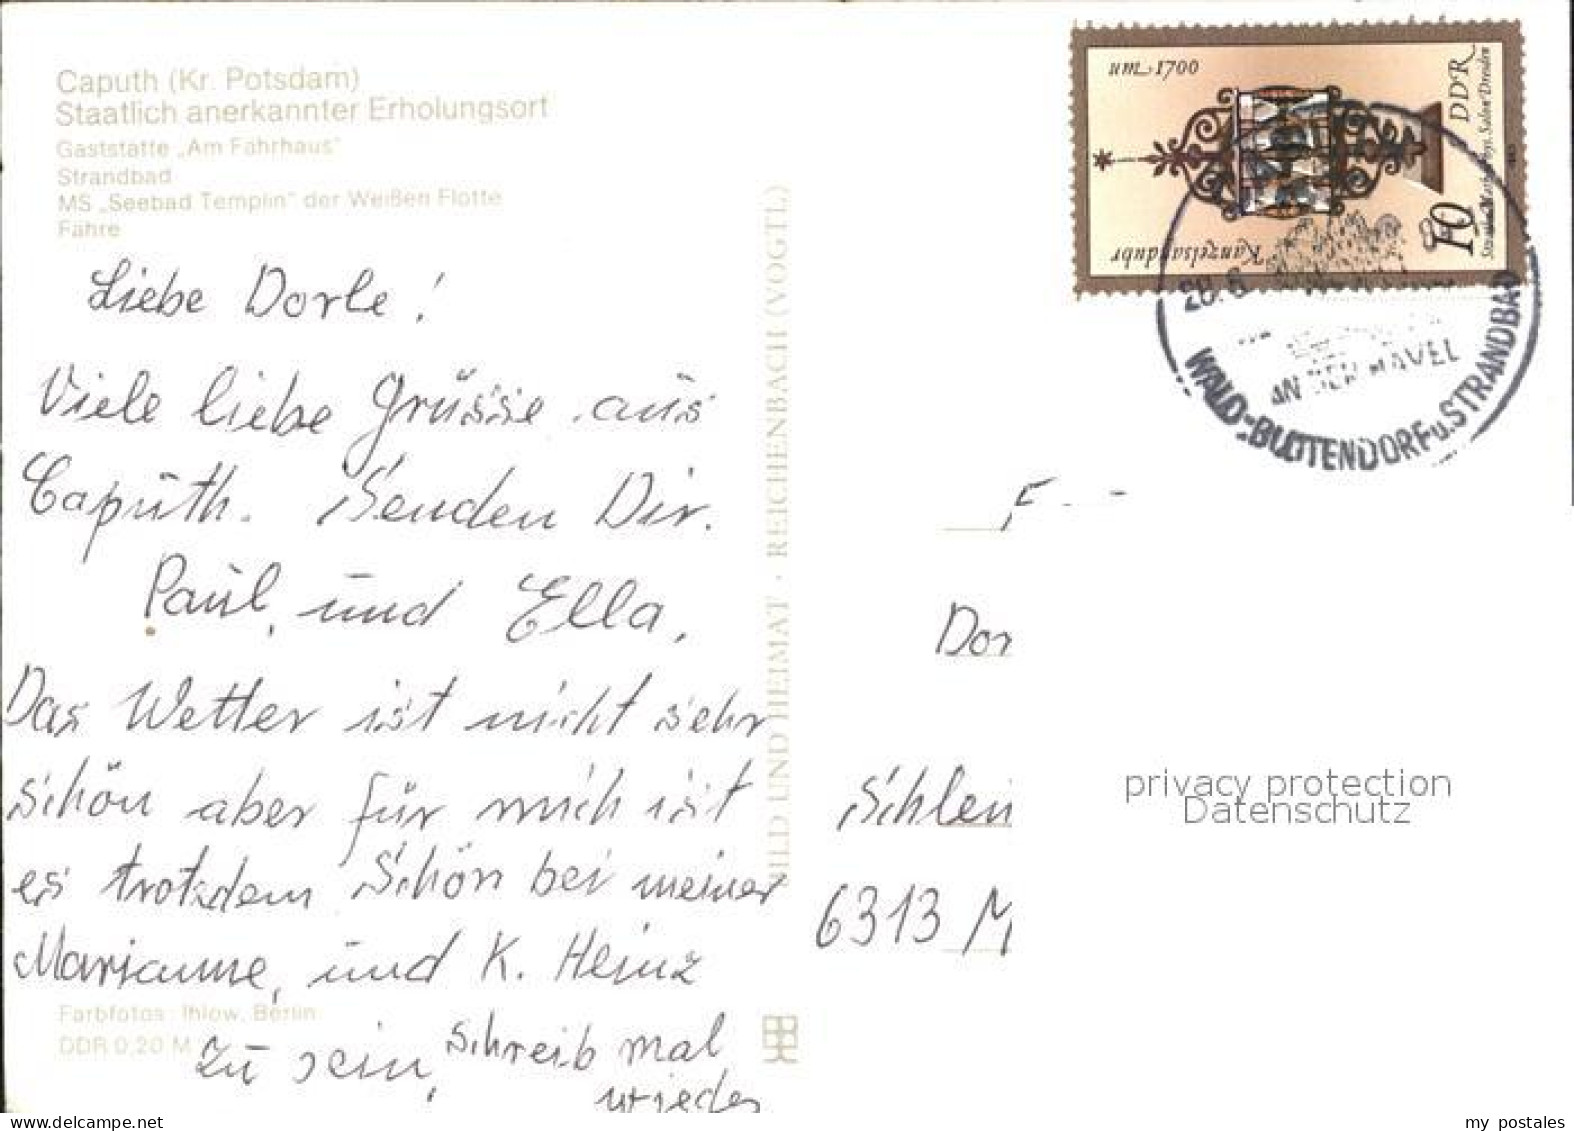 Caputh (Kr. Potsdam)
Staatlich anerkannter Erholungsort
Gaststätte „Am Fährhaus"
Strandbad
MS „Seebad Templin" der Weißen Flotte
Fähre
Liebe Dorle!
Viele liebe Grüsse aus
Caputh. Senden Dir.
Paul, und Ella,
Das Wetter ist nicht sehr
schön aber für mich ist
es trotzdem Schön bei meiner
Marianne, und K. Heinz
zu sein, schreib mal
wieder
Farbfotos: Ihlow, Berlin
DDR 0,20 M
BILD UND HEIMAT · REICHENBACH (VOGTL)
um 1700
Kanzelsanduhr
10
DDR
28.6.
AN DER HAVEL
STRANDBAD
Dor
Schlei
6313 M
privacy protection
Datenschutz
my postales
www.delcampe.net